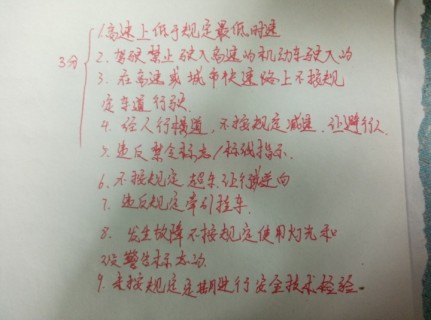 1.高速上低于规定最低时速
3分 2.驾驶禁止驶入高速的机动车驶入的
3.在高速或城市快速路上不按规
定车道行驶.
4.经人行横道,不按规定减速.让避行人
5.违反禁令标志/标线指示.
6.不按规定超车.让行.逆向
7.违反规定牵引挂车.
8.发生故障不按规定使用灯光和
警告标志的.
9.未按规定定期进行安全技术检验.